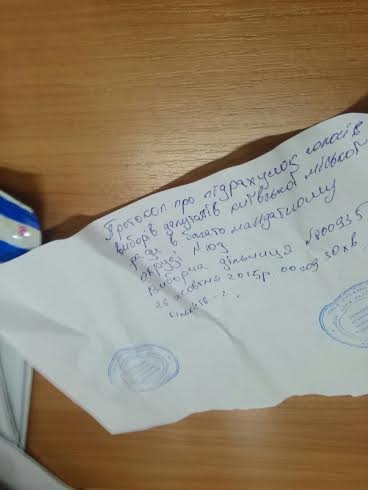 Протокол про підрахунок голосів
виборів депутатів Київської міської
ради в багатомандатному
окрузі №109
Виборча дільниця №800935
26 жовтня 2015р 00 год 30 хв.